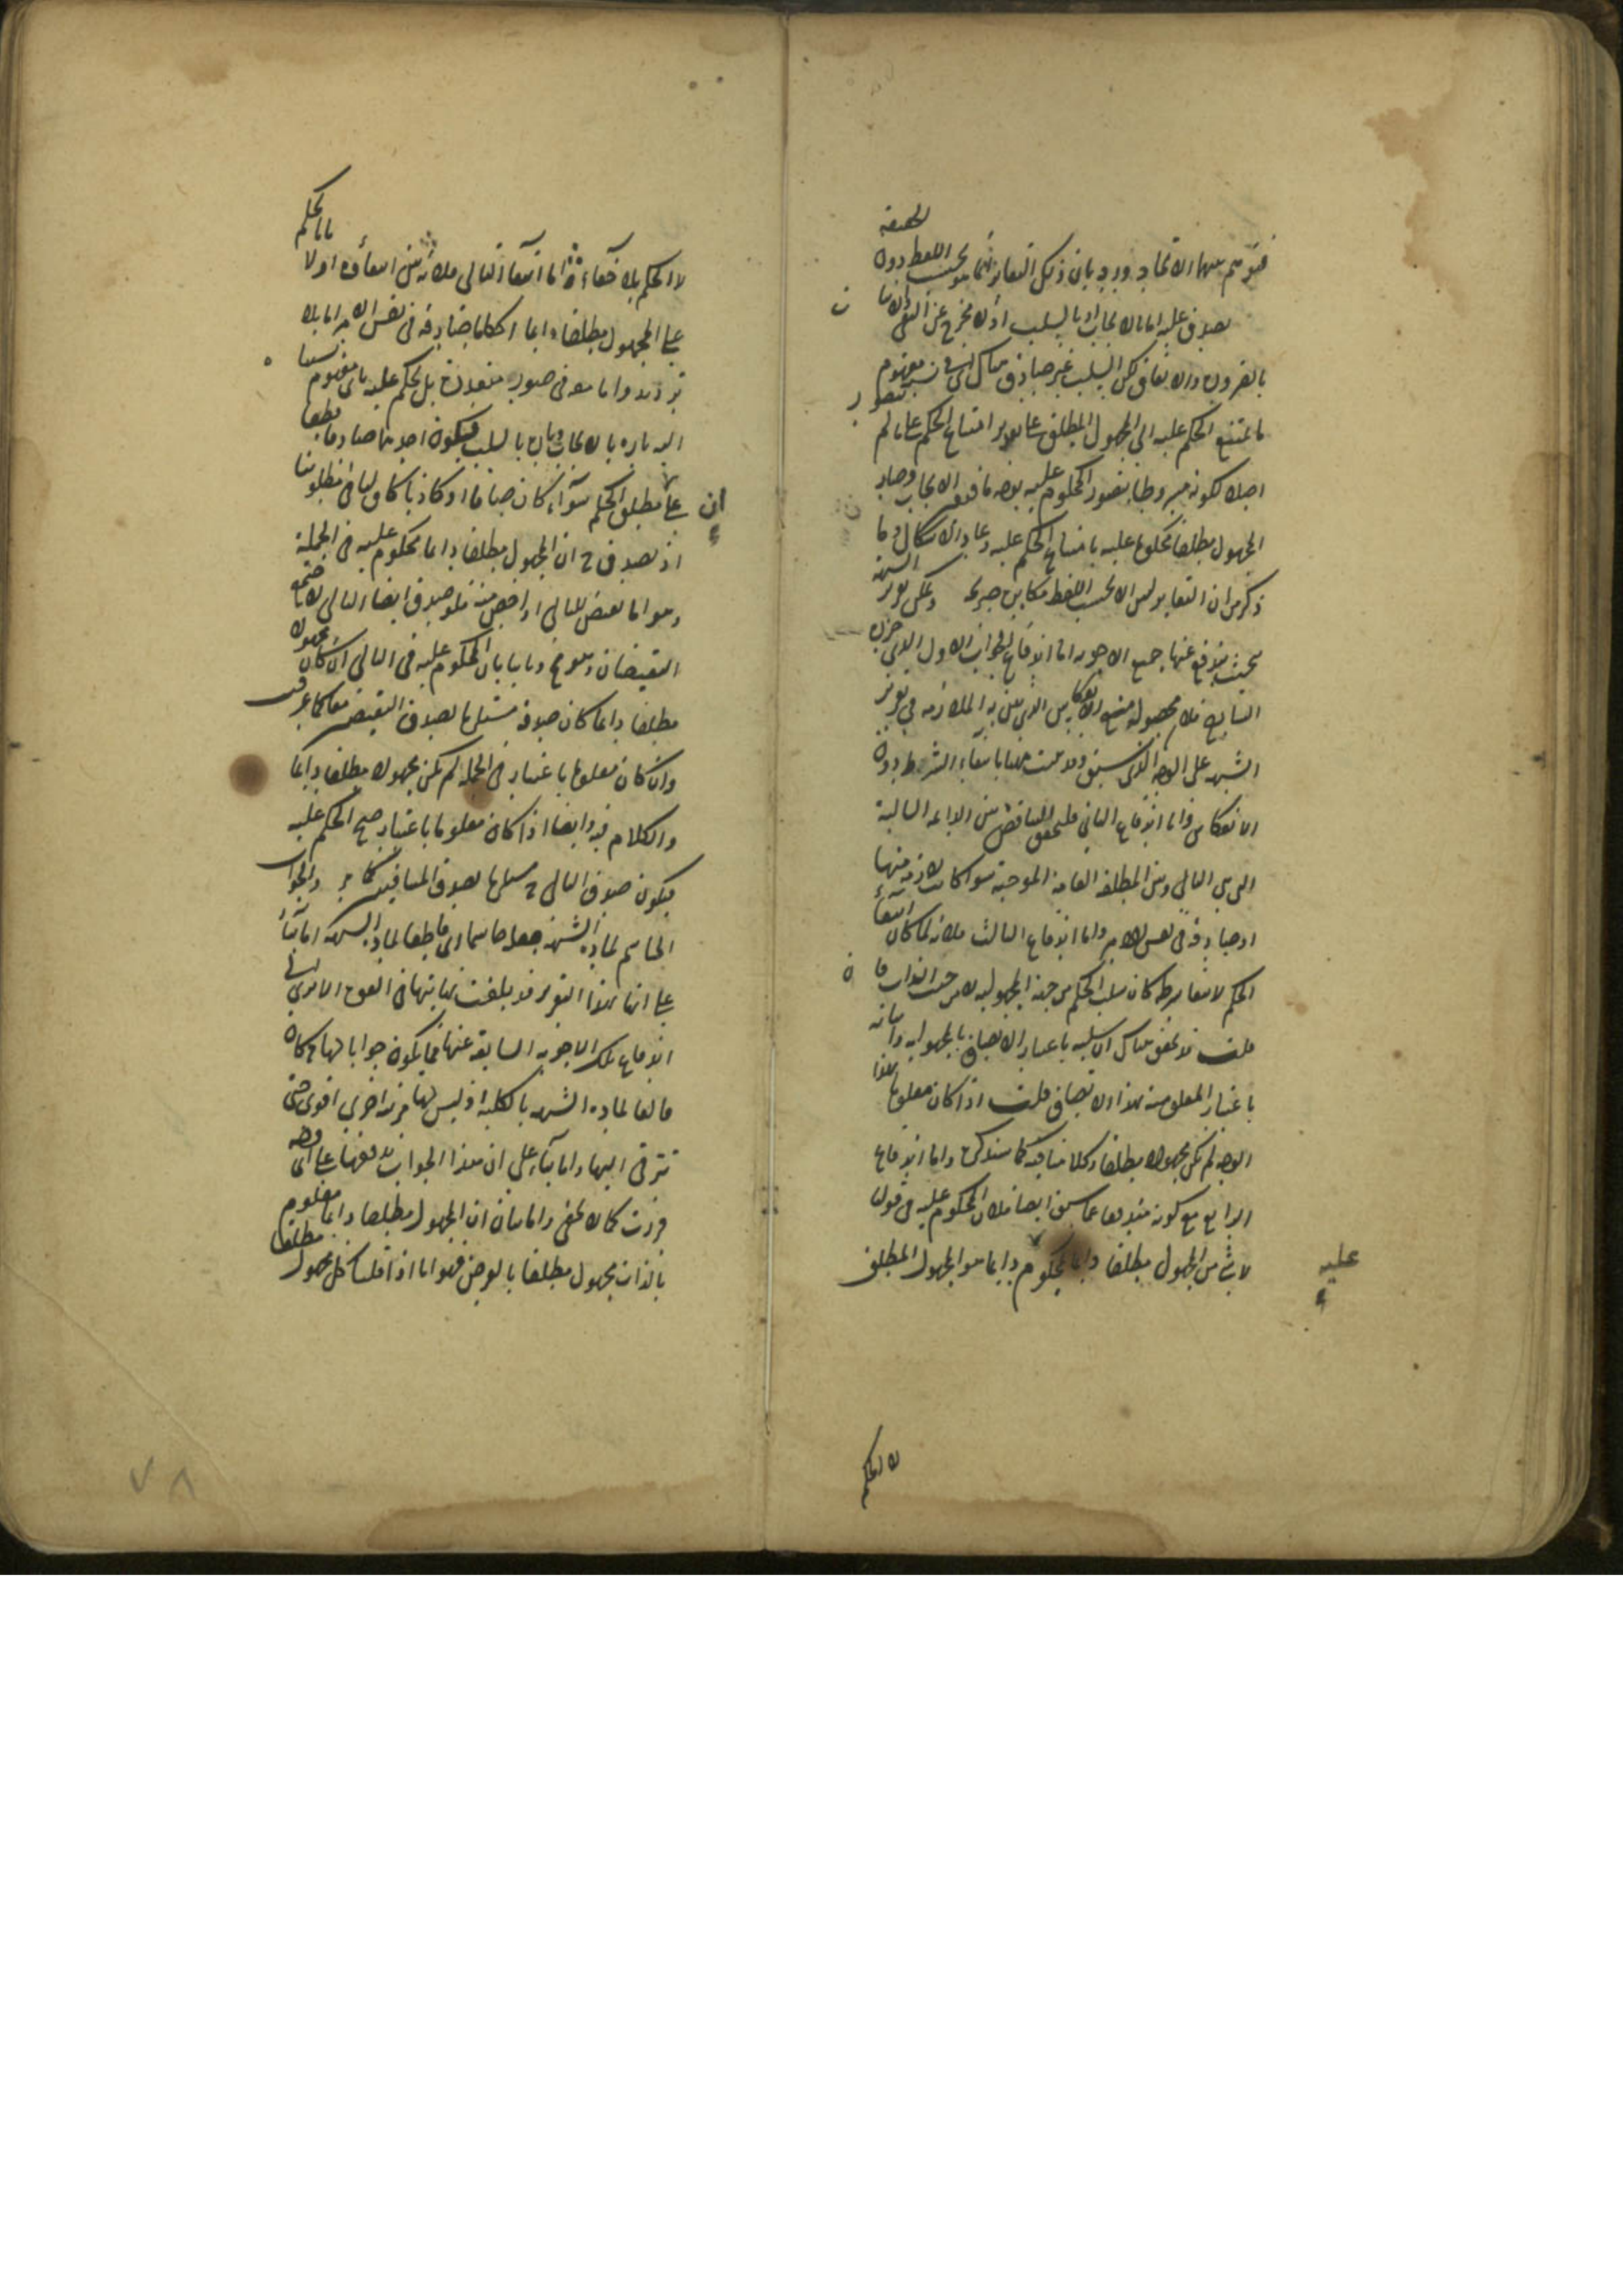 فتوهم بينهما الاتحاد ورد بان ذلك التغاير انما هو بحسب اللفظ دون الحقيقة
يصدق عليه اما بالايجاب او بالسلب اذ لا مخرج عن النقيضين
بالضرورة والاتفاق لكن السلب غير صادق هناك
ما يمتنع الحكم عليه الى المجهول المطلق على تقدير امتناع الحكم على ما لم يتصور
اصلا لكونه مشروطا بتصور المحكوم عليه بوجه ما فتعين الايجاب وصار
المجهول مطلقا محكوما عليه بامتناع الحكم عليه وعاد الاشكال وما
ذكر من ان التغاير ليس الا بحسب اللفظ مكابرة صريحة ويمكن تقرير الشبهة
بحيث يندفع عنها جميع الاجوبة اما اندفاع الجواب الاول
السابع فلان محصوله منع الانعكاس الذي يبتنى به الملازمة في تقرير
الشبهة على الوجه الذي سبق وقد بينت ههنا بانتفاء الشرط دون
الانعكاس واما اندفاع الثاني فلتحقق التناقض بين الدائمة السالبة
التي هي التالي وبين المطلقة العامة الموجبة سواء كانت لازمة منها
او صادقة في نفس الامر واما اندفاع الثالث فلانه لما كان انتفاء
الحكم لانتفاء شرطه كان سلب الحكم من جهة المجهولية لا من حيث الذات
قلت قد تحقق هناك ان سلبه باعتبار الاتصاف بالمجهولية وامكانه
باعتبار المعلومية بهذا الاتصاف قلت اذا كان معلوما بهذا
الوجه لم يكن مجهولا مطلقا وكلامنا فيه كما سنذكره واما اندفاع
الرابع مع كونه مندفعا بما سبق ايضا فلان المحكوم عليه في قولنا
لا شئ من المجهول مطلقا دائما بمحكوم عليه دائما هو المجهول المطلق
لا الحكم
لا الحكم بلا خفاء واما انتفاء التالي فلانه بين انتفاؤه اولا بان الحكم
على المجهول مطلقا دائما احكاما صادقة في نفس الامر اما بلا
ترديد واما هو في صور متعددة بل يحكم عليه باي مفهوم شئنا
تارة بالايجاب وتارة بالسلب فيكون احدهما صادقا قطعا
على ان مطلق الحكم سواء كان صادقا او كاذبا كاف لنا في مطلوبنا
اذ يصدق ح ان المجهول مطلقا دائما محكوم عليه في الجملة
وهو اما نقيض للتالي او اخص منه فلو صدق ايضا التالي لاجتمع
النقيضان وهو مح وثانيا بان المحكوم عليه في التالي ان كان مجهولا
مطلقا دائما كان صدقه مستلزما لصدق النقيضين معا كما عرفت
وان كان معلوما باعتبار في الجملة لم يكن مجهولا مطلقا دائما
والكلام فيه وايضا اذا كان معلوما باعتبار صح الحكم عليه
فيكون صدق التالي ح مستلزما لصدق المتنافيين كما مر والجواب
الحاسم لمادة الشبهة جعله حاسما اي قاطعا لمادة الشبهة اما بناء
على انها بهذا التقرير قد بلغت نهايتها في القوة الا ترى الى
اندفاع تلك الاجوبة السابقة عنها فما يكون جوابا لها ح كان
قالعا لمادة الشبهة بالكلية اذ ليس لها مرتبة اخرى اقوى حتى
تترقى اليها واما بناء على ان هذا الجواب يدفعها على اي وجه
قررت كما لا يخفى واما بيان ان المجهول مطلقا دائما معلوم
بالذات مجهول مطلقا بالفرض فهو انا اذا قلنا كل مجهول مطلقا